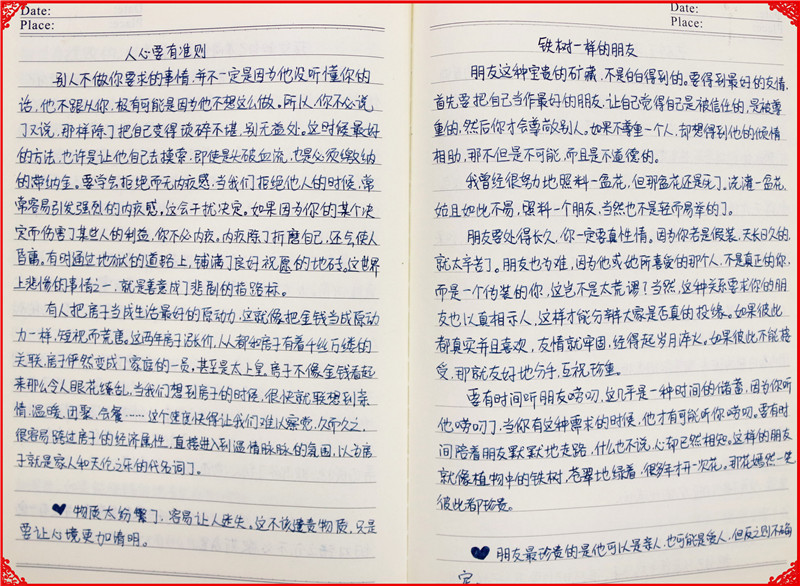 Date:
Place:
人心要有准则
别人不做你要求的事情,并不一定是因为他没听懂你的
话,他不跟从你,极有可能是因为他不想这么做。所以,你不必说
了又说,那样除了把自己变得琐碎不堪,别无益处。这时候最好
的方法,也许是让他自己去摸索,即使是头破血流,也是必须缴纳
的滞纳金。要学会拒绝而无内疚感,当我们拒绝他人的时候,常
常容易引发强烈的内疚感。这会干扰决定。如果因为你的某个决
定而伤害了某些人的利益,你不必内疚。内疚除了折磨自己,还会使人
盲庸。有时通过地狱的道路上,铺满了良好祝愿的地砖。这世界
上悲伤的事情之一,就是善变成了悲剧的指路标。
有人把房子当成生活最好的原动力,这就像把金钱当成原动
力一样,短视而荒唐。这两年房子涨价,人人都和房子有着千丝万缕的
关联,房子俨然变成了家庭的一员,甚至是太上皇。房子不像金钱看起
来那么令人眼花缭乱,当我们想到房子的时候,很快就联想到亲
情,温暖,团聚,会餐……这个速度快得让我们难以察觉,久而久之,
很容易跨过房子的经济属性,直接进入到温情脉脉的氛围,以为房
子就是家人和天伦之乐的代名词了。
♥ 物质太纷繁了,容易让人迷失。这不该谴责物质,只是
要让心境更加清明。
Date:
Place:
铁树一样的朋友
朋友这种宝贵的矿藏,不是白得到的。要得到最好的友情,
首先要把自己当作最好的朋友,让自己觉得自己是被信任的,是被尊
重的,然后你才会尊敬别人。如果不尊重一个人,却想得到他的倾情
相助,那不但是不可能,而且是不道德的。
我曾经很努力地照料一盆花,但那盆花还是死了。浇灌一盆花,
姑且如此不易,照料一个朋友,当然也不是轻而易举的了。
朋友要处得长久,你一定要真性情。因为你若是假装,天长日久的,
就太辛苦了。朋友也为难,因为他或她所喜爱的那个人,不是真正的你,
而是一个伪装的你,这岂不是太荒谬?当然,这种关系要求你的朋
友也以真相示人,这样才能分辨大家是否真的投缘。如果彼此
都真实并且喜欢,友情就牢固,经得起岁月淬火。如果彼此不能接
受,那就友好地分手,互祝珍重。
要有时间听朋友唠叨,这几乎是一种时间的储蓄,因为你听
他唠叨了,当你有这种需求的时候,他才有可能听你唠叨。要有时
间陪着朋友默默地走路,什么也不说,心却已然相知。这样的朋友
就像植物中的铁树,苍翠地绿着,很多年才开一次花。那花嫣然一笑
彼此都珍贵。
♥ 朋友最珍贵的是他可以是亲人,也可能是爱人,但反之则不确
定。